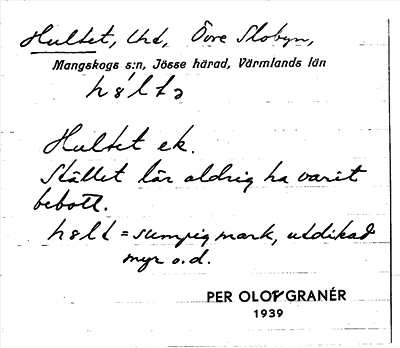 Hultet, Und, Övre Slobyn,
Mangskogs s:n, Jösse härad, Värmlands län
hø̀ltə
Hultet ek.
Stället lär aldrig ha varit
bebott.
hølt = sumpig mark, utdikad
myr o.d.
PER OLOF GRANÉR
1939